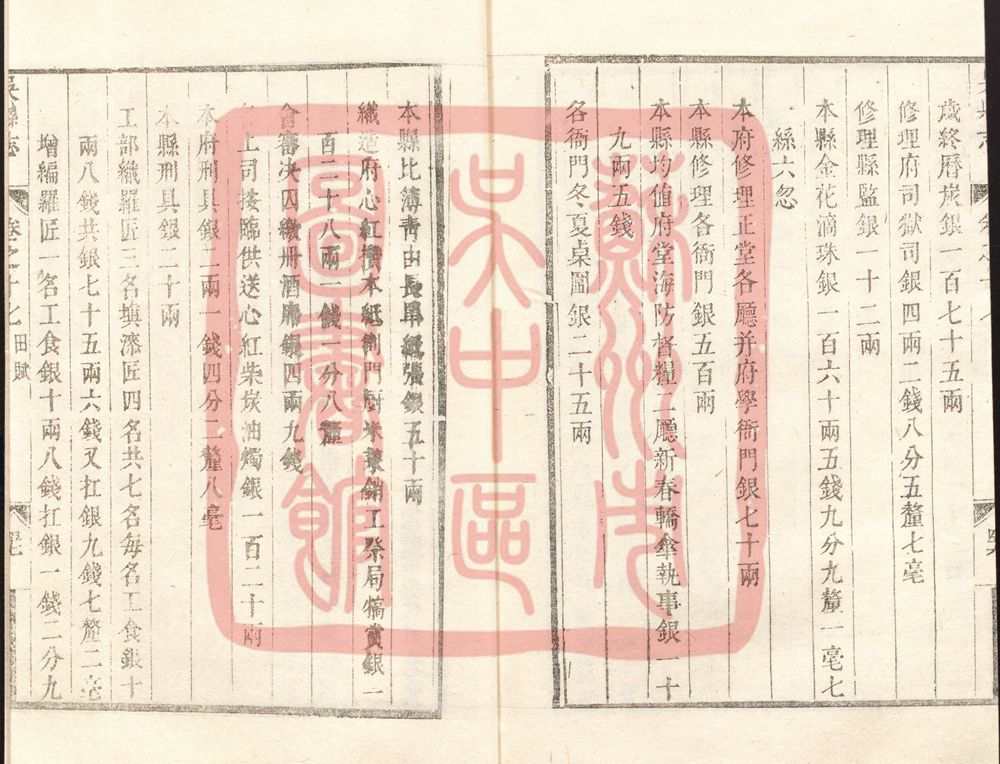 歲終曆炭銀一百七十五兩
修理府司獄司銀四兩二錢八分五釐七毫
修理縣監銀一十二兩
本縣金花滴珠銀一百六十兩五錢九分九釐一毫七
絲六忽
本府修理正堂各廳并府學衙門銀七十兩
本縣修理各衙門銀五百兩
本縣均備府堂海防督糧二廳新春轎傘執事銀一十
九兩五錢
各衙門冬夏桌圍銀二十五兩
本縣比簿青由長單紙張銀五十兩
織造府心紅攢本紙劄門廚米菜銷工祭局犒賞銀一
百二十八兩一錢一分八釐
會審決囚繳冊酒席銀四兩九錢
上司按臨供送心紅柴炭油燭銀一百二十兩
本府刑具銀二兩一錢四分二釐八毫
本縣刑具銀二十兩
工部織羅匠三名填漆匠四名共七名每名工食銀十
兩八錢共銀七十五兩六錢又扛銀九錢七釐二毫
增編羅匠一名工食銀十兩八錢扛銀一錢二分九
吳縣志
卷之十七 田賦
蘇州市
吳中區
圖書館